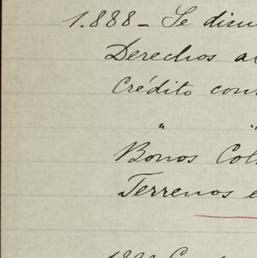 1.888 - Se
Derechos
Crédito con
" "
Bonos Col
Terrenos e